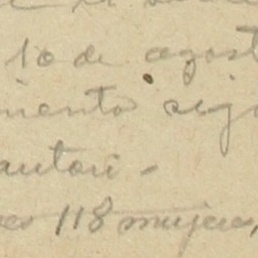 10 de agost
miento sig
autori-
es 118 mujeres,